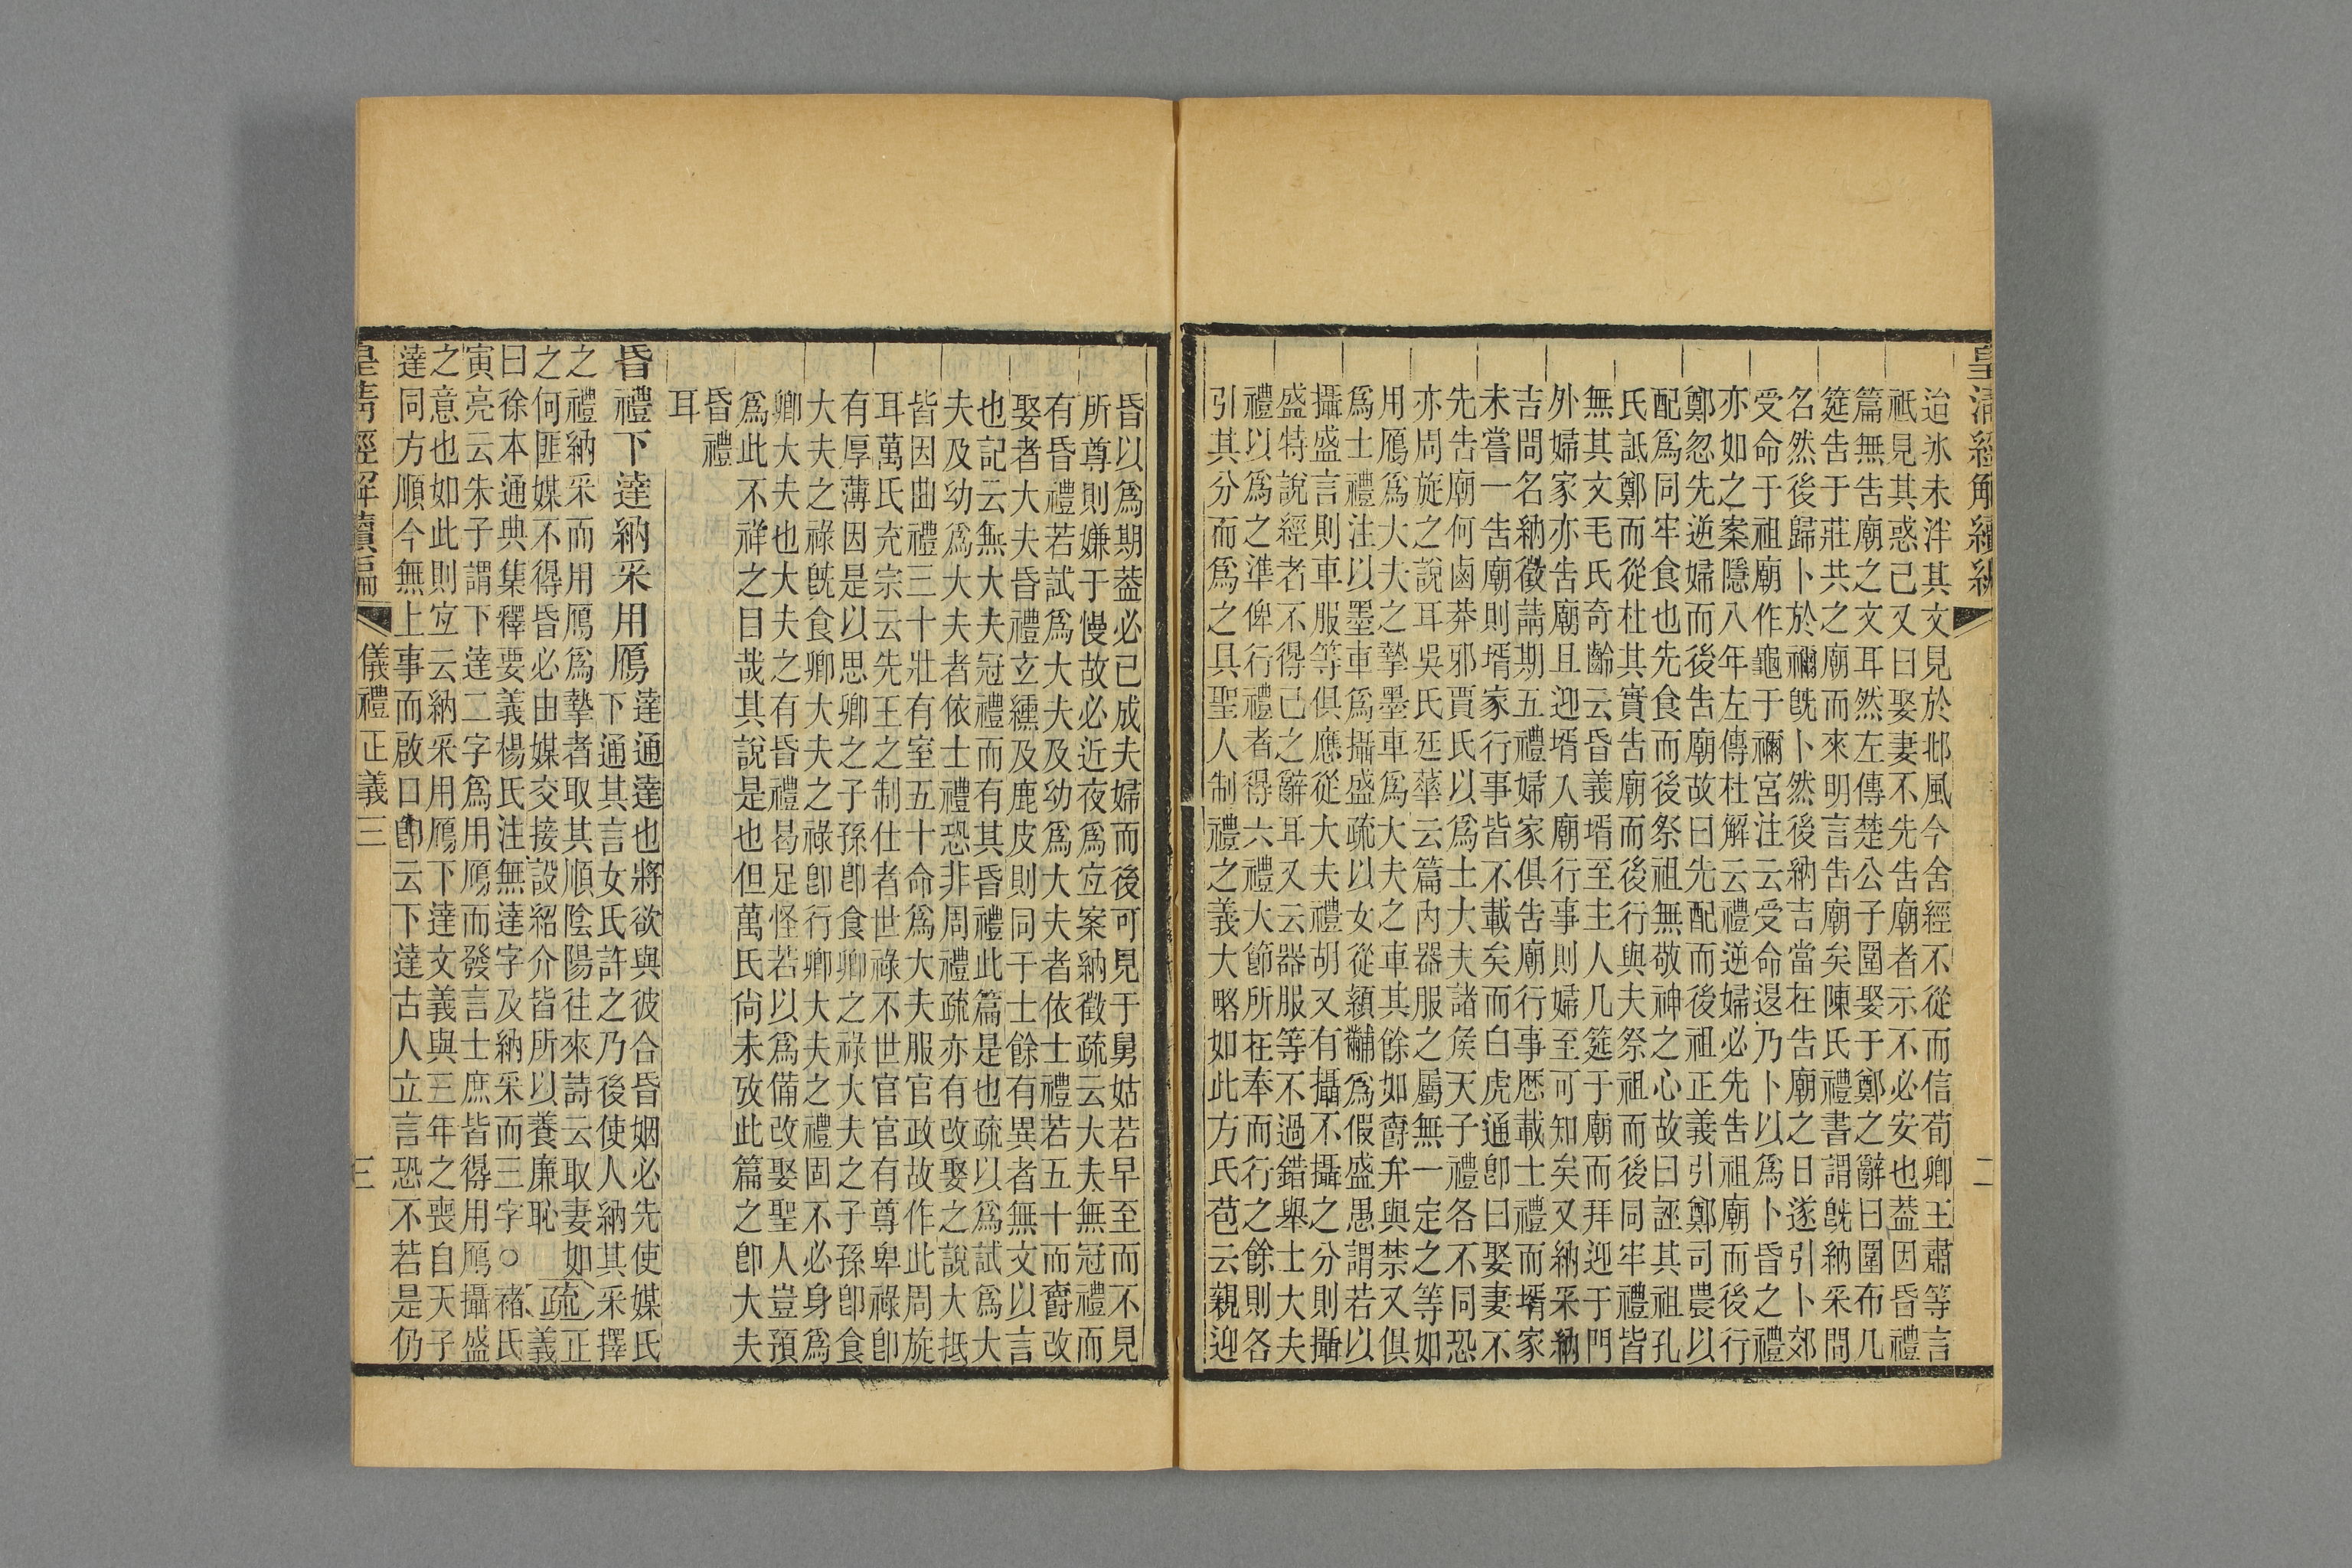 皇淸經解續編
二
迨冰未泮其文見於邶風今舍經不從而信荀卿王肅等言
祇見其惑己又曰娶妻不先告廟者示不必安也葢因昏禮
篇無告廟之文耳然左傳楚公子圍娶于鄭之辭曰圍布几
筵告于莊共之廟而來明言告廟矣陳氏禮書謂旣納采問
名然後歸卜於禰旣卜然後納吉當在告廟之日遂引卜郊
受命于祖廟作龜于禰宮注云受命退乃卜以爲卜昏之禮
亦如之案隱八年左傳杜解云禮逆婦必先告祖廟而後行
鄭忽先逆婦而後告廟故曰先配而後祖正義引鄭司農以
配爲同牢食也先食而後祭祖無敬神之心故曰誣其祖孔
氏詆鄭而從杜其實告廟而後行與夫祭祖而後同牢禮皆
無其文毛氏奇齡云昏義壻至主人几筵于廟而拜迎于門
外婦家亦告廟且迎壻入廟行事則婦至可知矣又納采納
吉問名納徵請期五禮婦家俱告廟行事歷載士禮而壻家
未嘗一告廟則壻家行事皆不載矣而白虎通卽曰娶妻不
先告廟何鹵莽邪賈氏以爲士大夫諸侯天子禮各不同恐
亦周旋之說耳吳氏廷華云篇內器服之屬無一定之等如
用鴈爲大夫之摯墨車爲大夫之車其餘如爵弁與禁又俱
爲士禮注以墨車爲攝盛疏以女從潁黼爲假盛愚謂若以
攝盛言則車服等俱應從大夫禮胡又有攝不攝之分則攝
盛特說經者不得已之辭耳又云器服等不過錯舉士大夫
禮以爲之準俾行禮者得六禮大節所在奉而行之餘則各
引其分而爲之具聖人制禮之義大略如此方氏苞云親迎
昏以爲期葢必已成夫婦而後可見于舅姑若早至而不見
所尊則嫌于慢故必近夜爲宜案納徵疏云大夫無冠禮而
有昏禮若試爲大夫及幼爲大夫者依士禮若五十而爵改
娶者大夫昏禮玄纁及鹿皮則同于士餘有異者無文以言
也記云無大夫冠禮而有其昏禮此篇是也疏以爲試爲大
夫及幼爲大夫者依士禮恐非周禮疏亦有改娶之說大抵
皆因曲禮三十壯有室五十命爲大夫服官政故作此周旋
耳萬氏充宗云先王之制仕者世祿不世官官有尊卑祿卽
有厚薄因是以思卿之子孫卽食卿之祿大夫之子孫卽食
大夫之祿旣食卿大夫之祿卽行卿大夫之禮固不必身爲
卿大夫也大夫之有昏禮曷足怪若以爲備改娶聖人豈預
爲此不祥之目哉其說是也但萬氏尙未攷此篇之卽大夫
昏禮
耳
昏禮下達納采用鴈
達通達也將欲與彼合昏姻必先使媒氏
下通其言女氏許之乃後使人納其采擇
之禮納采而用鴈爲摯者取其順陰陽往來詩云取妻如
之何匪媒不得昏必由媒交接設紹介皆所以養廉恥
疏
正
義
曰徐本通典集釋要義楊氏注無達字及納采而三字○褚氏
寅亮云朱子謂下達二字爲用鴈而發言士庶皆得用鴈攝盛
之意也如此則宜云納采用鴈下達文義與三年之喪自天子
達同方順今無上事而啟口卽云下達古人立言恐不若是仍
皇淸經解續編
儀禮正義三
三